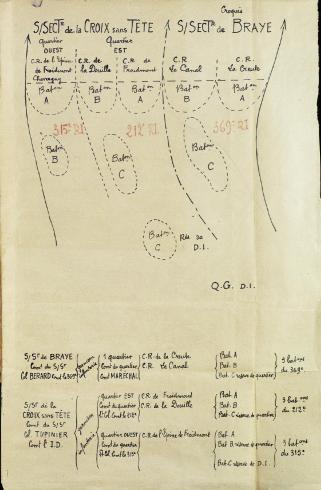 Croquis
S/SECTr de la CROIX sans TÊTE
S/SECTr de BRAYE
Quartier OUEST
Quartier EST
C.R. de l'Epine de Froidmont
C.R. de la Douille
C.R. de Froidmont
C.R. Le Canal
C.R. La Creute
Baton A
Baton B
Baton A
Baton B
Baton A
315e RI
212e RI
369e RI
Baton B
Baton C
Baton C
Baton C
Rve de D.I.
Q.G. D.I.
S/Sr de BRAYE
Comt du S/Sr
Cl BERARD Comt le 369e
1 quartier
Comt du quartier
Comt MARÉCHAL
C.R. de la Creute
C.R. Le Canal
Bat. A
Bat. B
Bat. C réserve de quartier
3 batons du 369e
S/Sr de la CROIX sans TÊTE
Comt du S/Sr
Cl TUPINIER
Comt l'I.D.
Quartier EST
Comt du quartier
Lt Cl Comt le 212e
C.R. de Froidmont
C.R. de la Douille
Bat. A
Bat. B
Bat. C réserve de quartier
3 batons du 212e
Quartier OUEST
Comt du quartier
Lt Cl Comt le 315e
C.R. de l'Epine de Froidmont
Bat. A
Bat. B réserve de quartier
Bat. C réserve de D.I.
3 batons du 315e